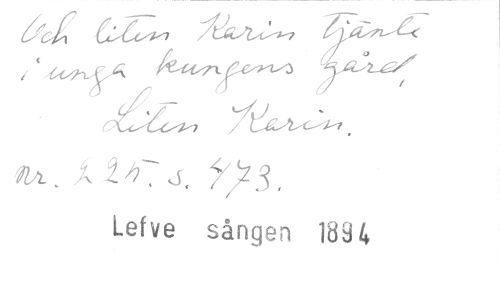 Och liten Karin tjänte
i unga kungens gård,
Liten Karin.
nr. 225. s. 473.
Lefve sången 1894